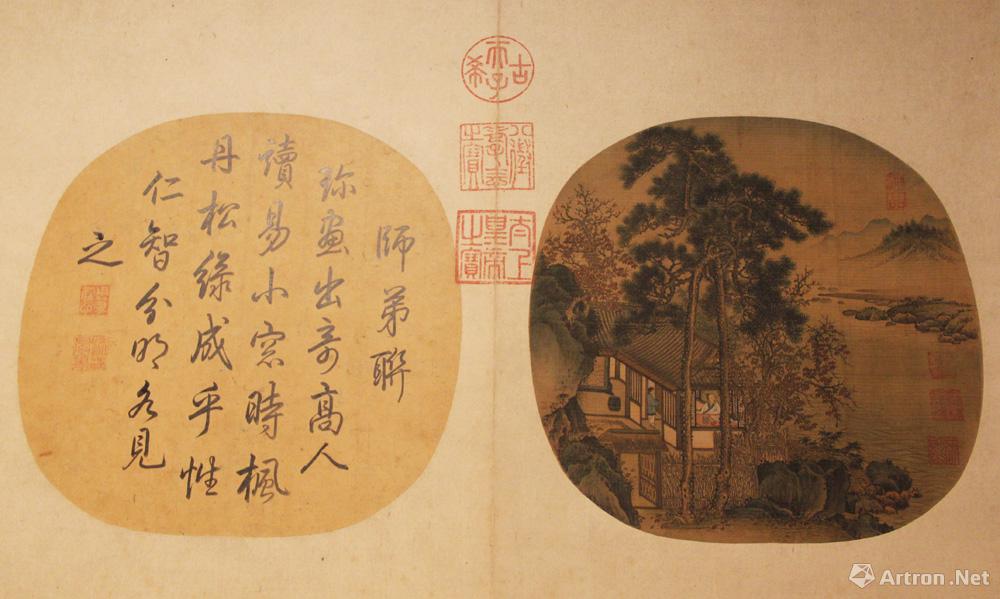 師弟聯
珎畫出奇高人
讀易小窓時楓
丹松綠成乎性
仁智分明各見
之
古希天子
八徵耄念之寶
太上皇帝之寶
Artron.Net